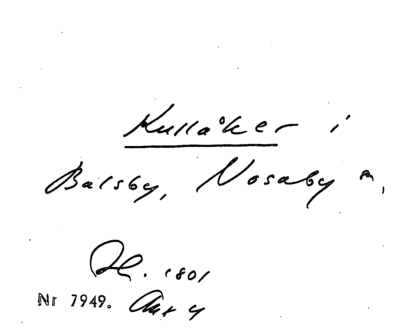 Kullåker i
Balsby, Nosaby sn,
Jb. 1801
Nr 7949.